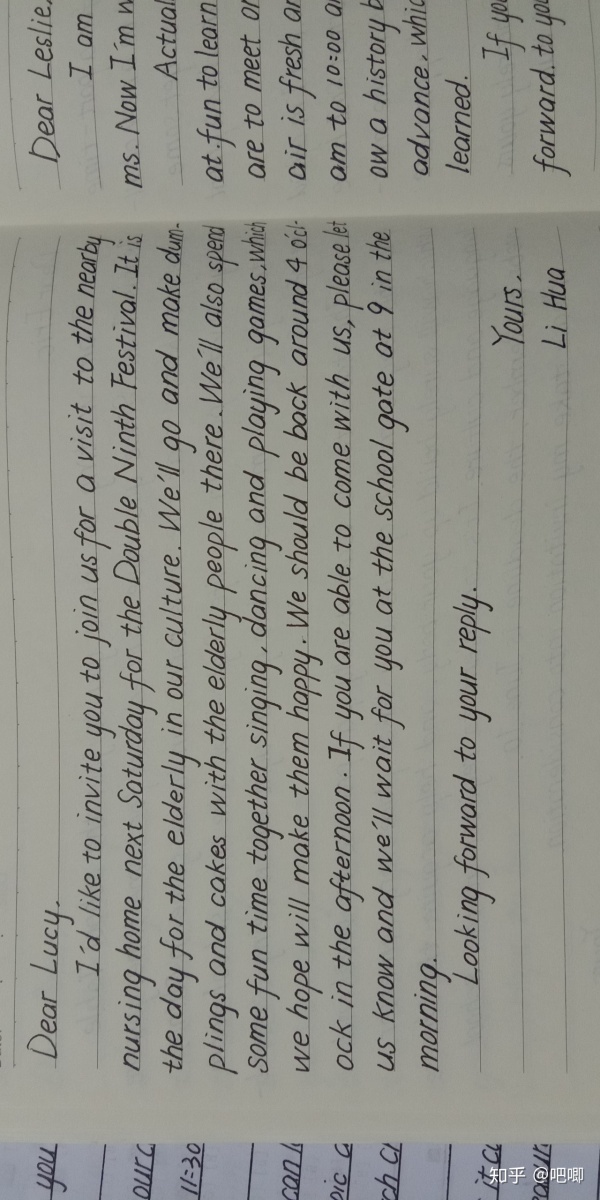 Dear Lucy,
I'd like to invite you to join us for a visit to the nearby
nursing home next Saturday for the Double Ninth Festival. It is
the day for the elderly in our culture. We'll go and make dum-
plings and cakes with the elderly people there. We'll also spend
some fun time together singing, dancing and playing games, which
we hope will make them happy. We should be back around 4 o'cl-
ock in the afternoon. If you are able to come with us, please let
us know and we'll wait for you at the school gate at 9 in the
morning.
Looking forward to your reply.
Yours,
Li Hua
Dear Leslie,
I am
ms. Now I'm w
Actual
at fun to learn
are to meet
air is fresh
am to 10:00
ow a history b
advance, whic
learned.
If you
forward to you
you
11:30
知乎 @吧唧